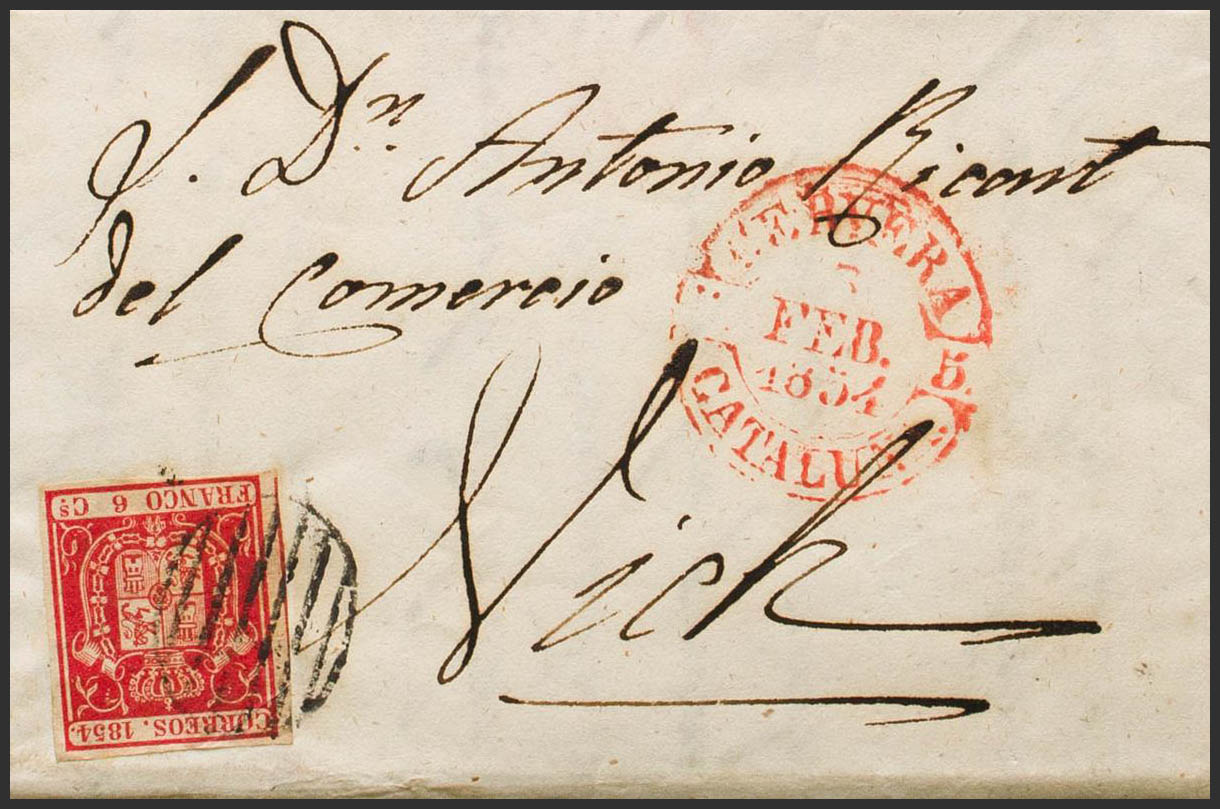 S. Dn. Antonio Ricart
del Comercio
Vich
CERVERA
5.
FEB.
1854
CATALUÑ.
FRANCO 6 Cs
CORREOS. 1854.